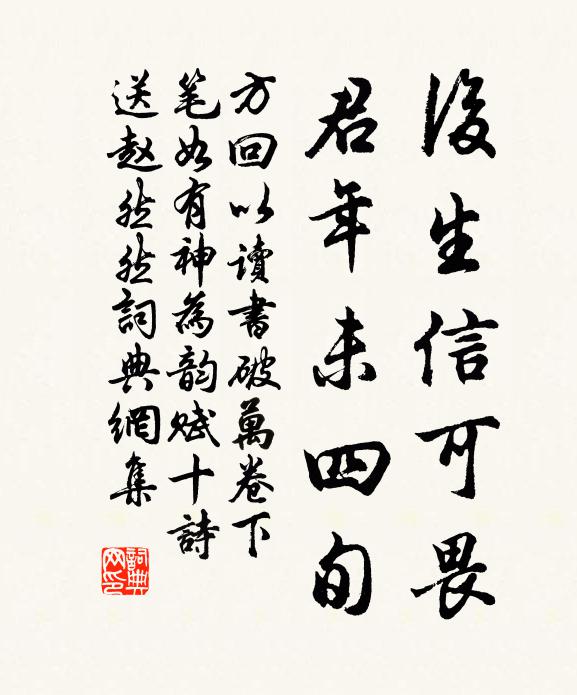 後生信可畏
君年未四旬
方回以讀書破萬卷下
笔如有神為韵賦十詩
送赵然然詞典網集
詞典网印